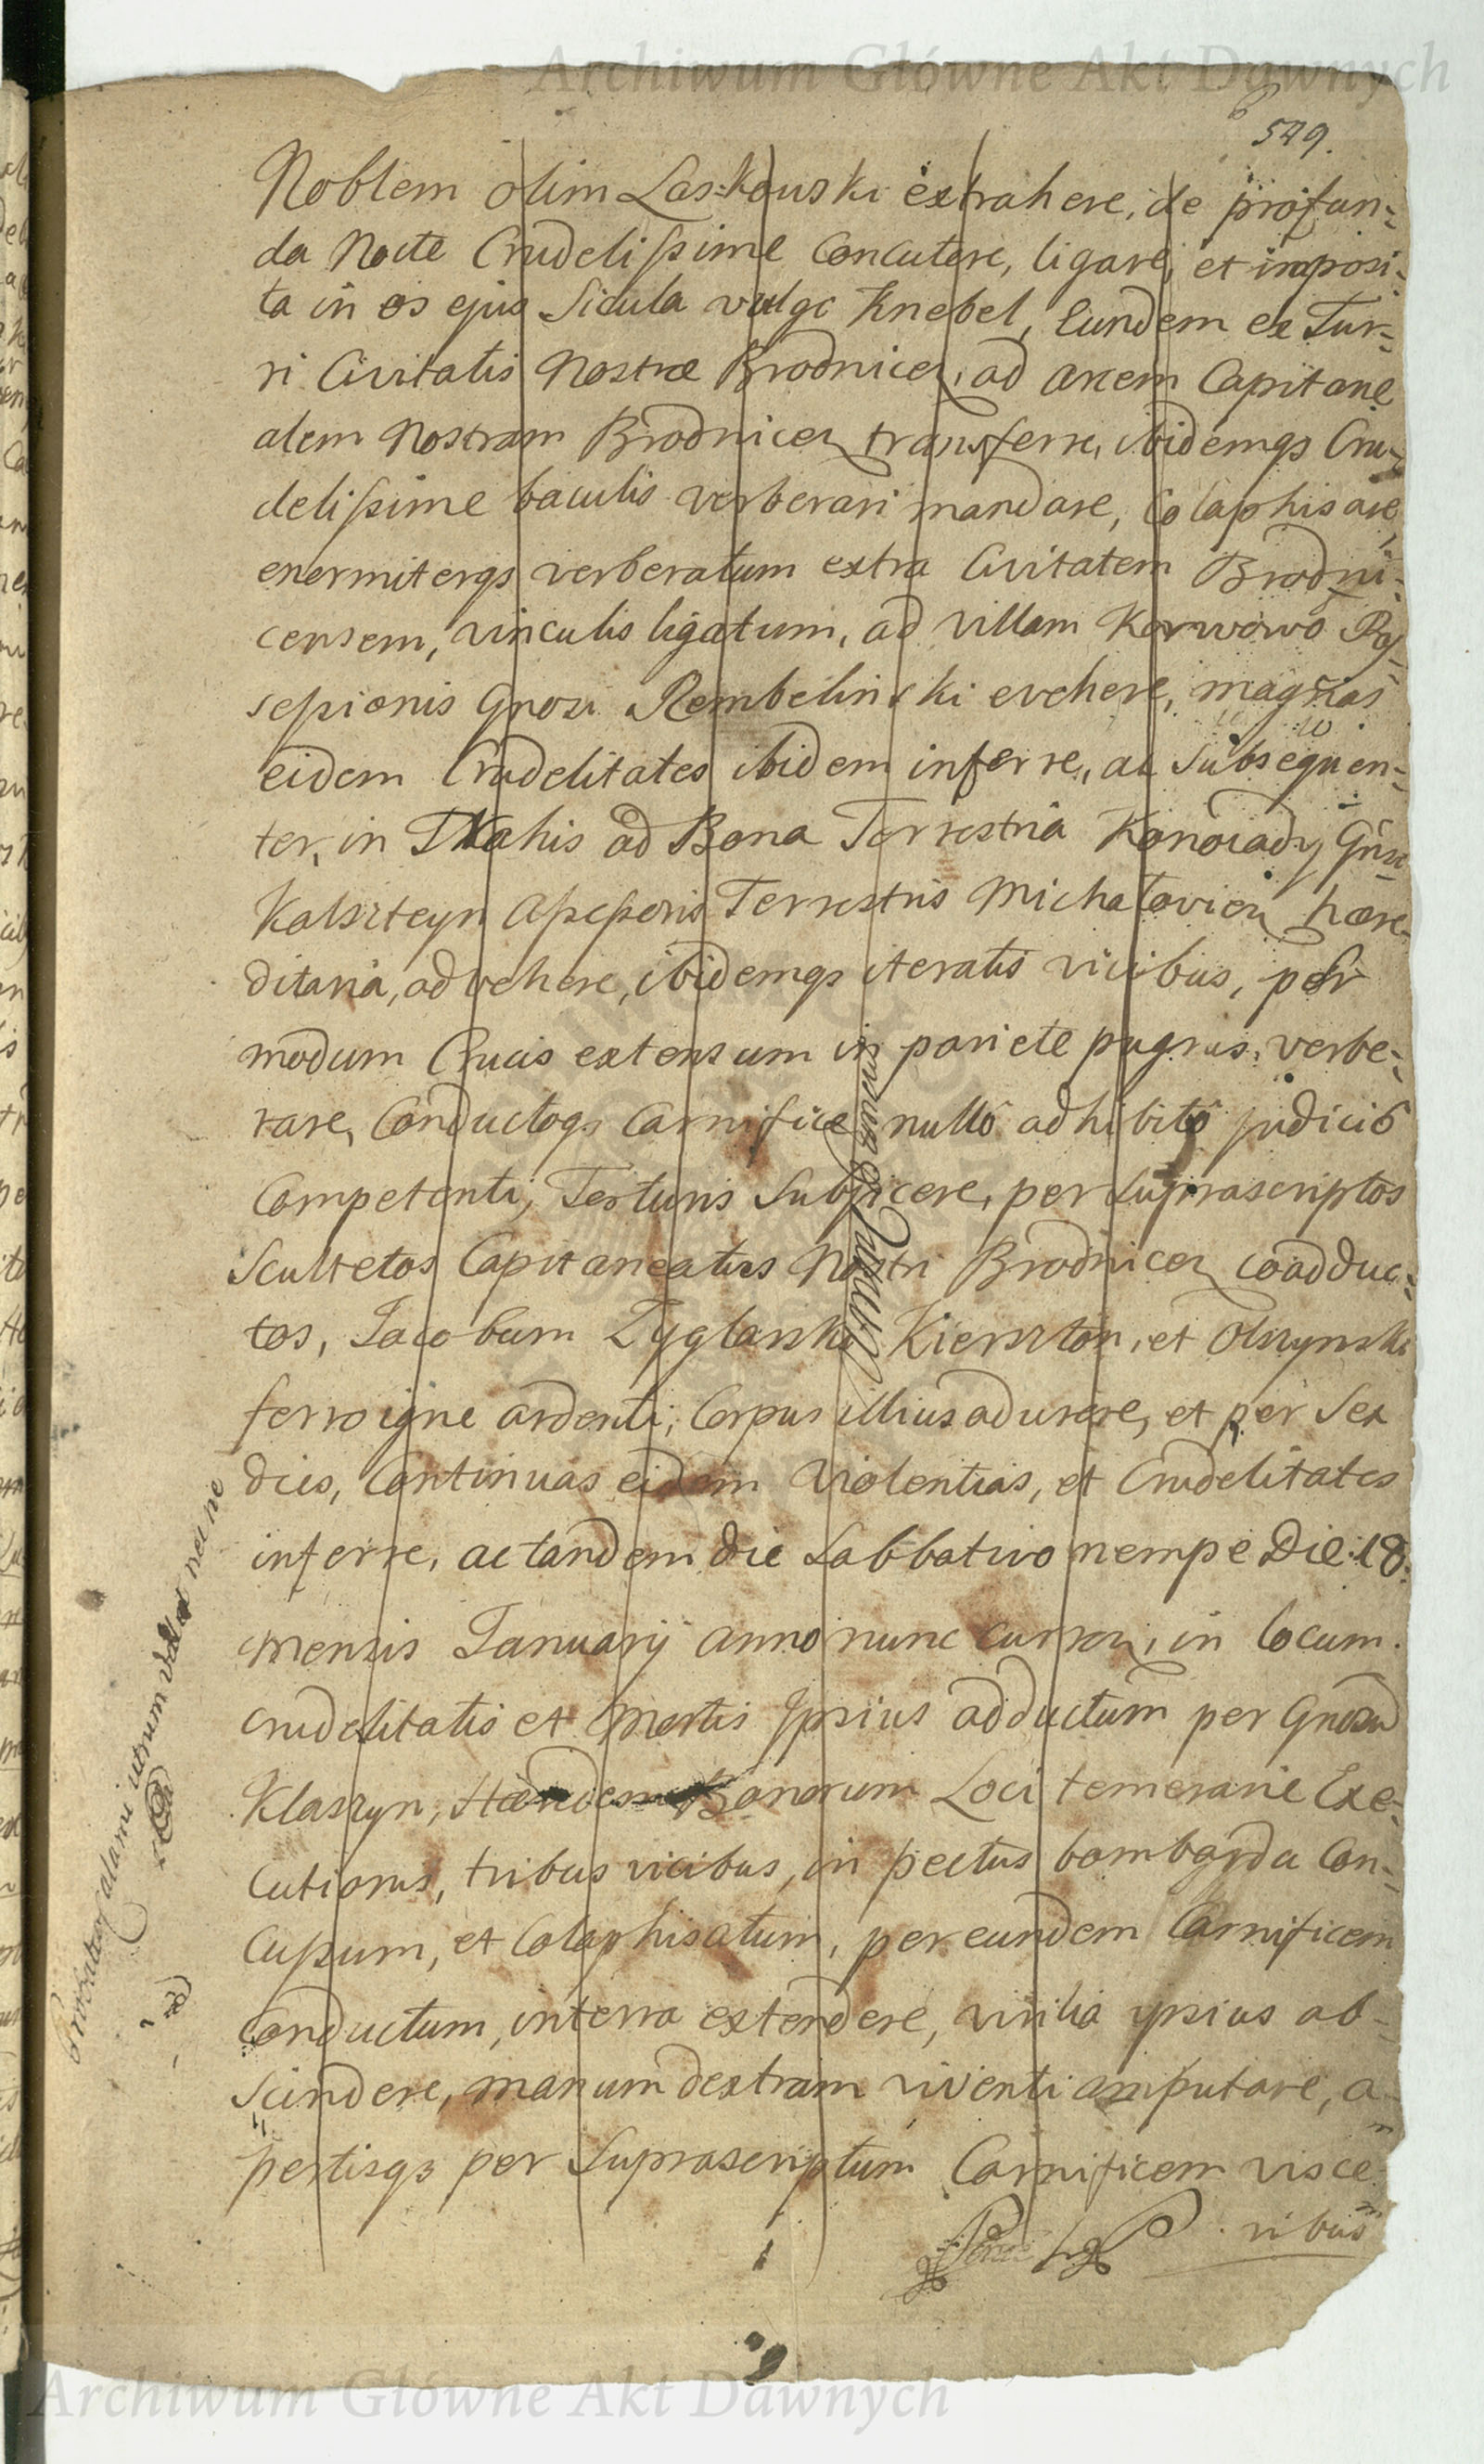 Archiwum Główne Akt Dawnych
549.
Noblem olim Las-kowski extrahere, de profun-
da Nocte Crudelissime Concutere, ligare, et imposi-
ta in os ejus Sicula vulgo Knebel, Eundem ex Tur-
ri Civitatis Nostræ Brodnicen, ad arcem Capitane
alem Nostram Brodnicen transferre, ibidemqs Cru-
delissime baculis verberari mandare, Colaphisare
enormiterqs verberatum extra Civitatem Brodni-
censem, vinculis ligatum, ad villam Karwowo Pos-
sessionis Gnosi Rembelinski evehere, magnas
eidem Crudelitates ibidem inferre, ac Subsequen-
ter, in Trahis ad Bona Terrestria Konoiady Gnsi
Kalszteyn Assessoris Terrestris Michalovien hære-
ditaria, advehere, ibidemqs iteratis vicibus, per
modum Crucis extensum in pariete pugnis, verbe-
rare, Conductoqs Carnifice, nullo adhibito judicio
Competenti, Torturis Subjicere, per Suprascriptos
Scultetos Capitaneatus Nostri Brodnicen coadduc-
tos, Jacobum Zyglarski Kierszton, et Olszynski
ferro igne ardenti, Corpus illius adurere, et per Sex
dies, Continuas eidem Violentias, et Crudelitates
inferre, ac tandem die Sabbativo nempe Die 18.
mensis Januarij anno nunc curren, in locum
crudelitatis et Mortis Ipsius adductum per Gnosum
Klaszyn, Hæredem Bonorum Loci temerarie Exe-
cutionis, tribus vicibus, in pectus bombarda Con-
cussum, et Colaphisatum, per eundem Carnificem
Conductum, in terra extendere, virilia ipsius ab-
scindere, manum dextram viventi amputare, a-
pertisqs per Suprascriptum Carnificem visce
ribus
calami utrum valeat nec ne
Archiwum Główne Akt Dawnych